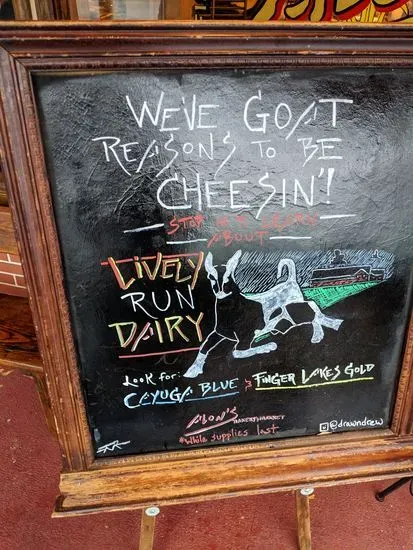 WE'VE GOAT
REASONS TO BE
CHEESIN'!
STOP IN & LEARN
ABOUT
LIVELY
RUN
DAIRY
LOOK FOR:
CAYUGA BLUE & FINGER LAKES GOLD
ALON'S BAKERY & MARKET
*While supplies last
@drawndrew